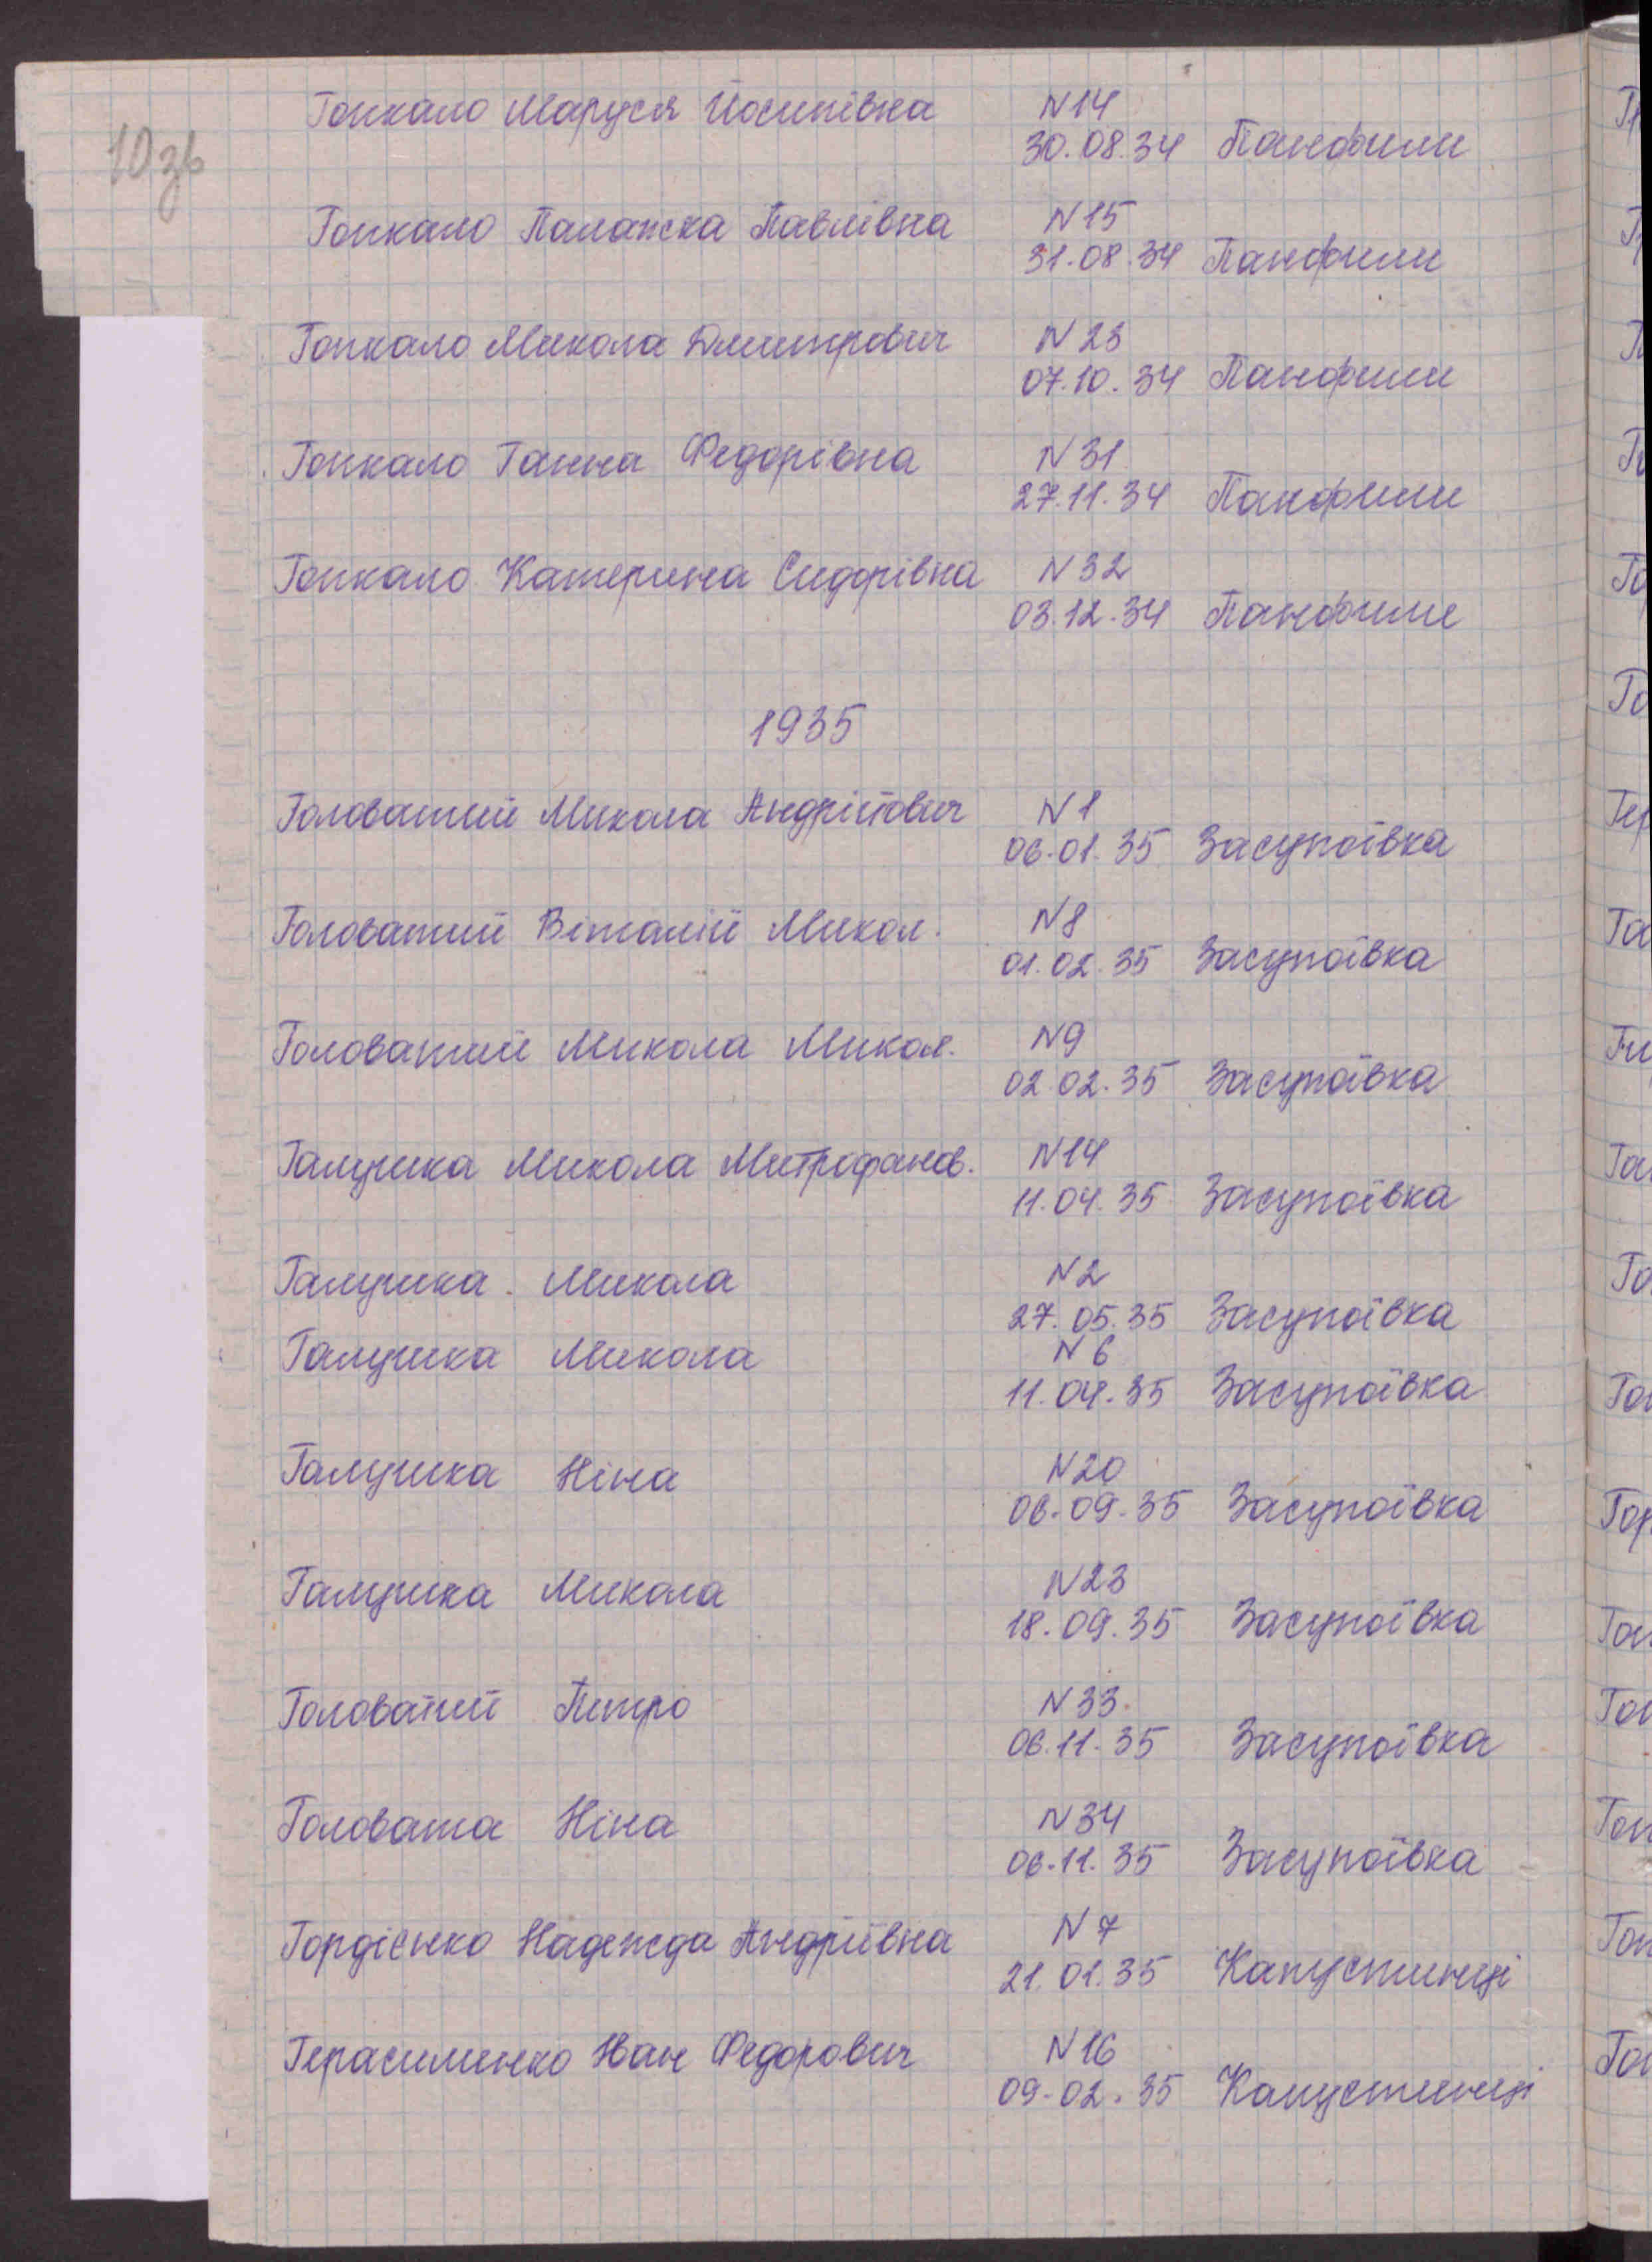 10зв
Гопкало Маруся Йосипівна N14
30.08.34 Панфили
Гопкало Палажка Павлівна N15
31.08.34 Панфили
Гопкало Микола Дмитрович N23
07.10.34 Панфили
Гопкало Ганна Федорівна N31
27.11.34 Панфили
Гопкало Катерина Сидорівна N32
03.12.34 Панфили
1935
Головатий Микола Андрійович N1
06.01.35 Засупоївка
Головатий Віталій Микол. N8
01.02.35 Засупоївка
Головатий Микола Микол. N9
02.02.35 Засупоївка
Галушка Микола Митрофанов. N14
11.04.35 Засупоївка
Галушка Микола N2
27.05.35 Засупоївка
Галушка Микола N6
11.04.35 Засупоївка
Галушка Ніна N20
06.09.35 Засупоївка
Галушка Микола N23
18.09.35 Засупоївка
Головатий Петро N33
06.11.35 Засупоївка
Головата Ніна N34
06.11.35 Засупоївка
Гордієнко Надежда Андріївна N7
21.01.35 Капустинці
Герасименко Іван Федорович N16
09.02.35 Капустинці